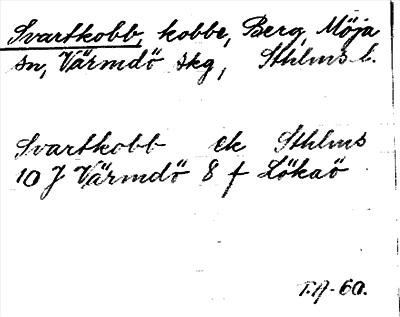 Svartkobb, kobbe, Berg, Möja
sn, Värmdö skg, Sthlms l.
Svartkobb ek Sthlms
10 J Värmdö 8 f Lökaö
T.A-60.